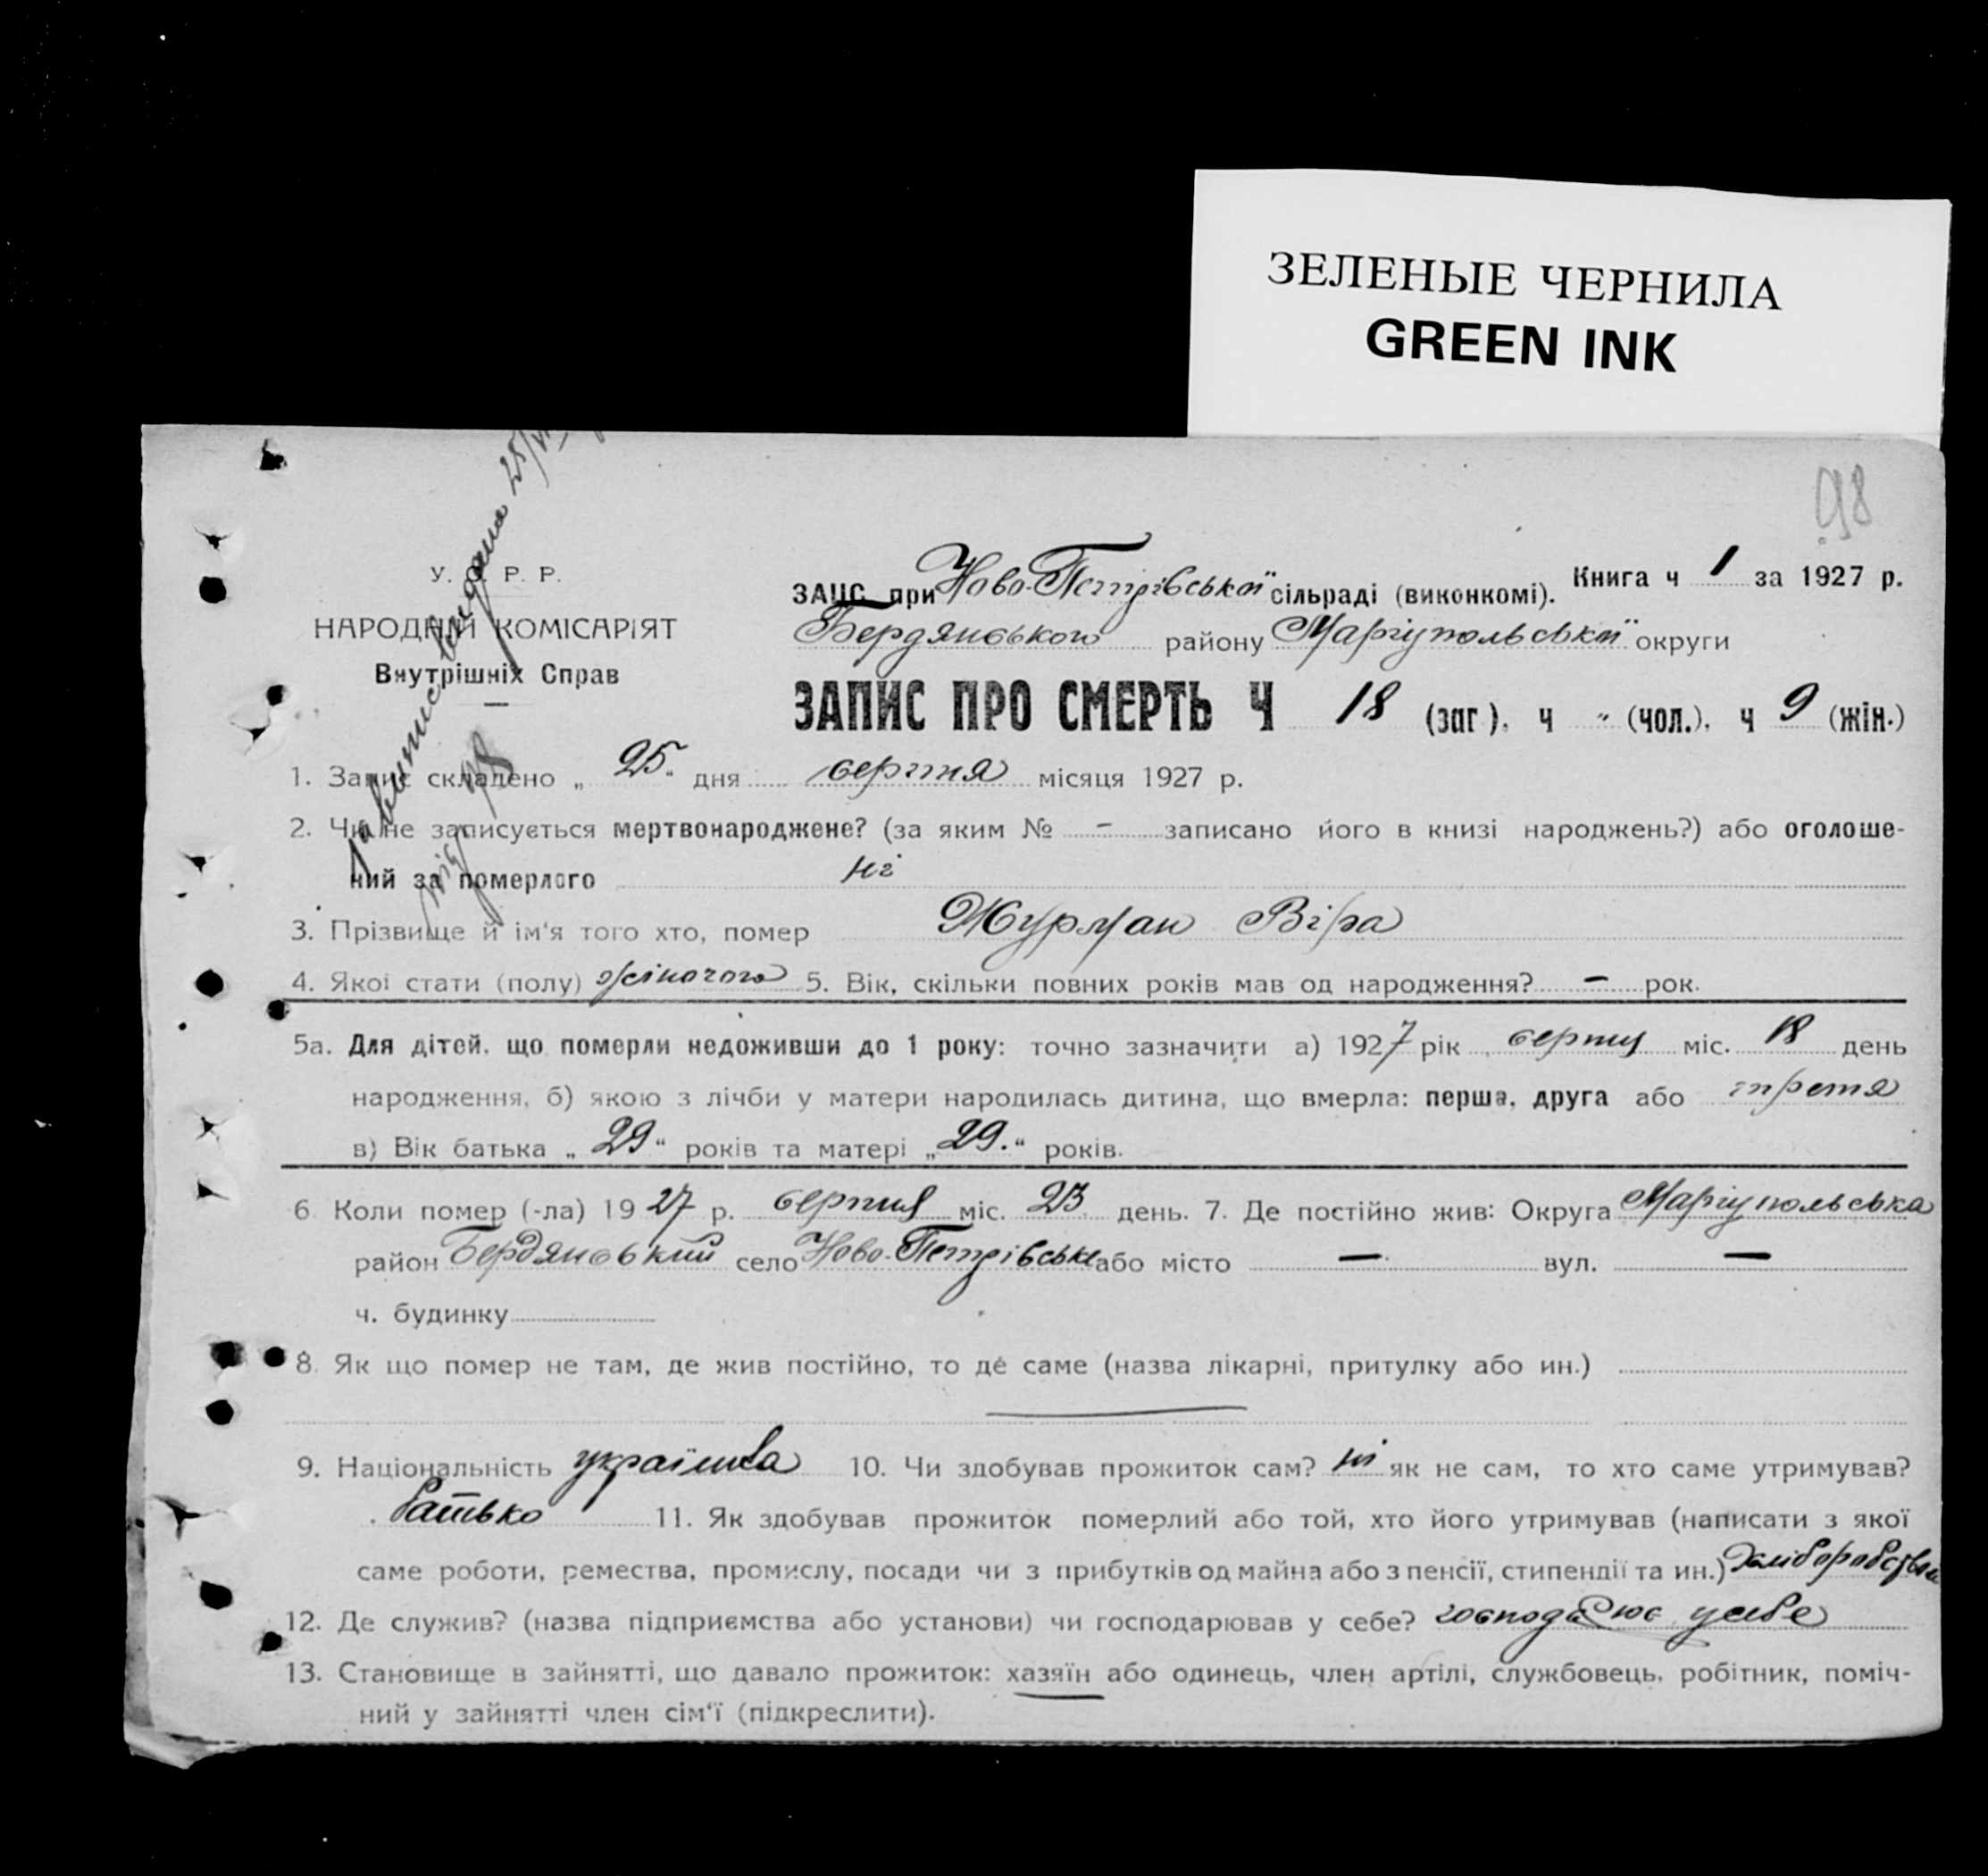 ЗЕЛЕНЫЕ ЧЕРНИЛА
GREEN INK
98
У. С. Р. Р.
НАРОДНИЙ КОМІСАРІЯТ
Внутрішніх Справ
виписе видана 25/VII
98
Книга ч 1 за 1927 р.
ЗАЦС при Ново-Петрівської сільраді (виконкомі).
Бердянського району Маріупольської округи
ЗАПИС ПРО СМЕРТЬ Ч 18 (заг). ч " (чол.). ч 9 (жін.)
1. Запис складено „ 25 " дня серпня місяця 1927 р.
2. Чи не записується мертвонароджене? (за яким № - записано його в книзі народжень?) або оголоше-
ний за померлого ні
3. Прізвище й ім'я того хто, помер Журман Віра
4. Якої стати (полу) жіночого 5. Вік, скільки повних років мав од народження? - рок.
5а. Для дітей, що померли недоживши до 1 року: точно зазначити а) 1927 рік серпня міс. 18 день
народження, б) якою з лічби у матери народилась дитина, що вмерла: перша, друга або третя
в) Вік батька „ 29 " років та матері „ 29. " років.
6 Коли помер (-ла) 1927 р. серпня міс. 23 день. 7. Де постійно жив: Округа Маріупольська
район Бердянський село Ново-Петрівське або місто — вул. —
ч. будинку
8. Як що помер не там, де жив постійно, то де саме (назва лікарні, притулку або ин.)
9. Національність українка 10. Чи здобував прожиток сам? ні як не сам, то хто саме утримував?
батько 11. Як здобував прожиток померлий або той, хто його утримував (написати з якої
саме роботи, ремества, промислу, посади чи з прибутків од майна або з пенсії, стипендії та ин.) хліборобством
12. Де служив? (назва підприємства або установи) чи господарював у себе? господарює у себе
13. Становище в зайнятті, що давало прожиток: хазяїн або одинець, член артілі, службовець, робітник, поміч-
ний у зайнятті член сім'ї (підкреслити).